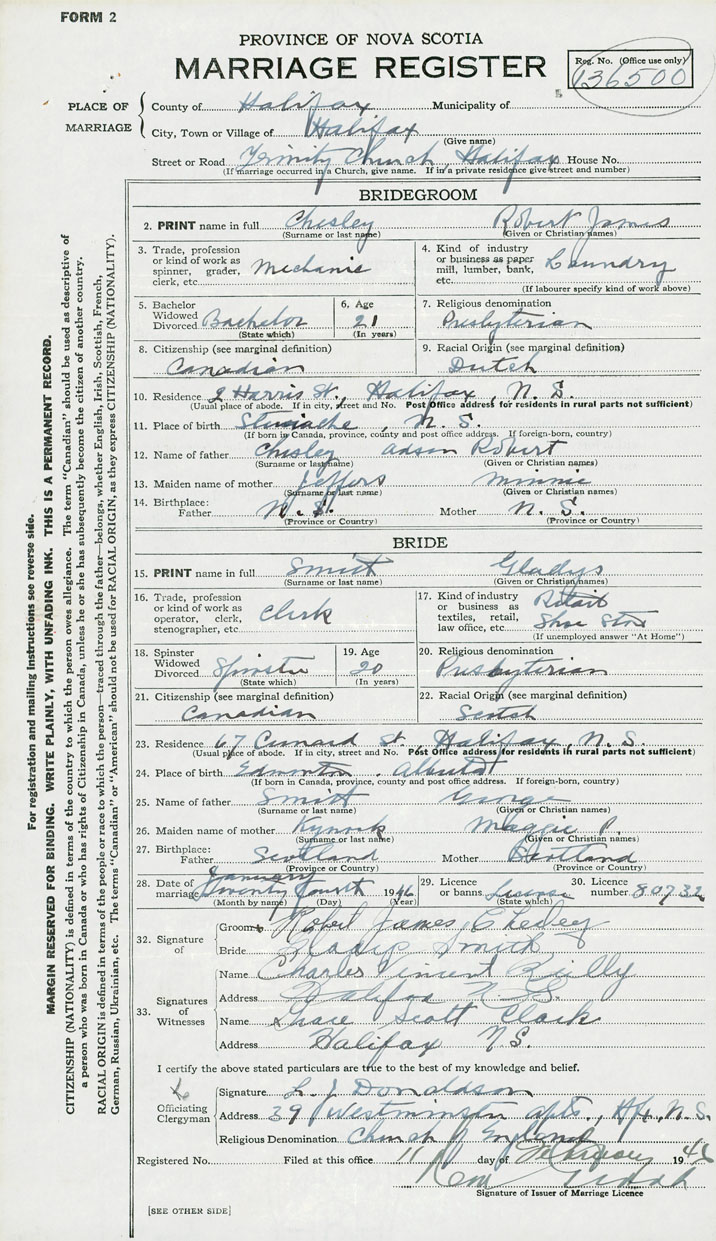 FORM 2
PROVINCE OF NOVA SCOTIA
MARRIAGE REGISTER
Reg. No. (Office use only)
136500
PLACE OF MARRIAGE
County of Halifax Municipality of
City, Town or Village of Halifax
(Give name)
Street or Road Trinity Church, Halifax House No.
(If marriage occurred in a Church, give name. If in a private residence give street and number)
BRIDEGROOM
2. PRINT name in full Chesley Robert James
(Surname or last name) (Given or Christian names)
3. Trade, profession or kind of work as spinner, grader, clerk, etc. Mechanic
4. Kind of industry or business as paper mill, lumber, bank, etc. Laundry
(If labourer specify kind of work above)
5. Bachelor Widowed Divorced Bachelor
(State which)
6. Age 21
(In years)
7. Religious denomination
Presbyterian
8. Citizenship (see marginal definition)
Canadian
9. Racial Origin (see marginal definition)
Dutch
10. Residence 2 Harris St., Halifax, N. S.
(Usual place of abode. If in city, street and No. Post Office address for residents in rural parts not sufficient)
11. Place of birth N. S.
(If born in Canada, province, county and post office address. If foreign-born, country)
12. Name of father Chesley Robert
(Surname or last name) (Given or Christian names)
13. Maiden name of mother Jeffers Minnie
(Surname or last name) (Given or Christian names)
14. Birthplace: Father N. S. Mother N. S.
(Province or Country) (Province or Country)
BRIDE
15. PRINT name in full Smith Gladys
(Surname or last name) (Given or Christian names)
16. Trade, profession or kind of work as operator, clerk, stenographer, etc. Clerk
17. Kind of industry or business as textiles, retail, law office, etc Retail Shoe Store
(If unemployed answer "At Home")
18. Spinster Widowed Divorced Spinster
(State which)
19. Age 20
(In years)
20. Religious denomination
Presbyterian
21. Citizenship (see marginal definition)
Canadian
22. Racial Origin (see marginal definition)
Scotch
23. Residence 67 Cunard St., Halifax, N. S.
(Usual place of abode. If in city, street and No. Post Office address for residents in rural parts not sufficient)
24. Place of birth Edmonton, Alberta
(If born in Canada, province, county and post office address. If foreign-born, country)
25. Name of father Smith George
(Surname or last name) (Given or Christian names)
26. Maiden name of mother Maggie P.
(Surname or last name) (Given or Christian names)
27. Birthplace: Father Scotland Mother Scotland
(Province or Country) (Province or Country)
28. Date of marriage January Twenty fourth 1946
(Month by name) (Day) (Year)
29. Licence or banns License
(State which)
30. Licence number 80732
32. Signature of
Groom Robert James Chesley
Bride Gladys Smith
33. Signatures of Witnesses
Name Charles Vincent Reilly
Address Halifax N.S.
Name Grace Scott Clark
Address Halifax N.S.
I certify the above stated particulars are true to the best of my knowledge and belief.
Officiating Clergyman
Signature L. J. Donaldson
Address 39 Westminster Apts., Hfx, N.S.
Religious Denomination Church of England
Registered No. Filed at this office 11 day of February 1946
Signature of Issuer of Marriage Licence
[SEE OTHER SIDE]
For registration and mailing instructions see reverse side.
MARGIN RESERVED FOR BINDING. WRITE PLAINLY, WITH UNFADING INK. THIS IS A PERMANENT RECORD.
CITIZENSHIP (NATIONALITY) is defined in terms of the country to which the person owes allegiance. The term "Canadian" should be used as descriptive of
a person who was born in Canada or who has rights of Citizenship in Canada, unless he or she has subsequently become the citizen of another country.
RACIAL ORIGIN is defined in terms of the people or race to which the person—traced through the father—belongs, whether English, Irish, Scottish, French,
German, Russian, Ukrainian, etc. The terms "Canadian" or "American" should not be used for RACIAL ORIGIN, as they express CITIZENSHIP (NATIONALITY).